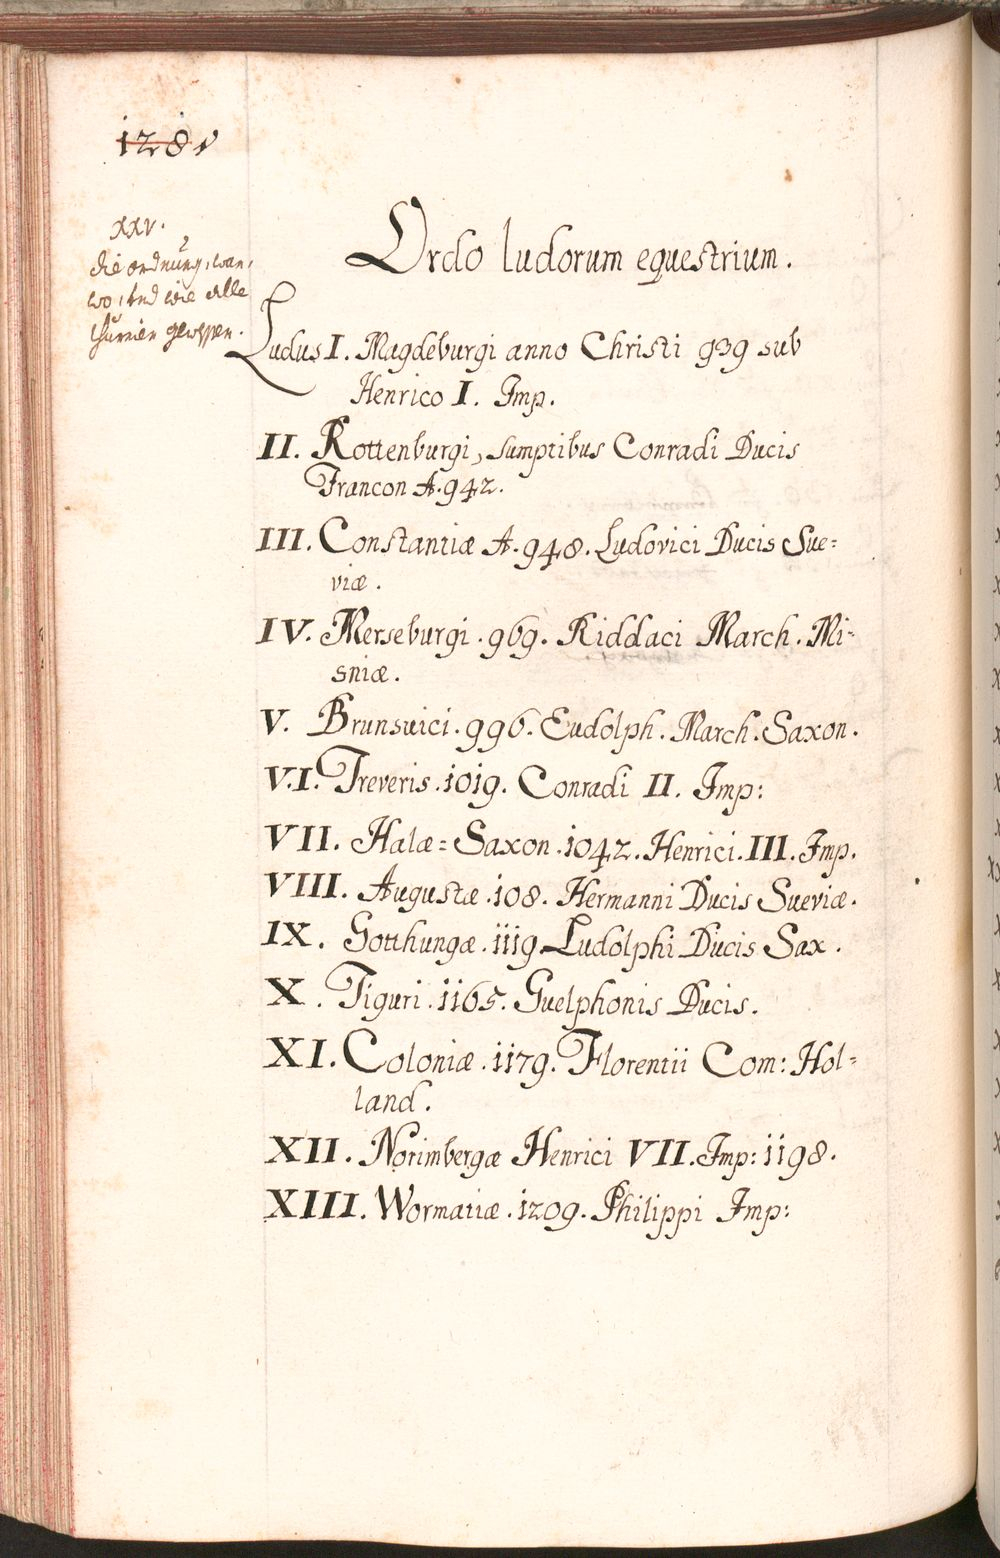 1281
XXV.
die ordnung, wan,
wo, und wie alle
thurnier gewesen.
Ordo ludorum equestrium.
Ludus I. Magdeburgi anno Christi 939 sub
Henrico I. Imp.
II. Rottenburgi, sumptibus Conradi Ducis
Francon A. 942.
III. Constantiæ A. 948. Ludovici Ducis Sue=
viæ.
IV. Merseburgi. 969. Riddaci March. Mi-
sniæ.
V. Brunsuici. 996. Eudolph. March. Saxon.
VI. Treveris. 1019. Conradi II. Imp:
VII. Halæ=Saxon. 1042. Henrici. III. Imp.
VIII. Augustæ. 108. Hermanni Ducis Sueviæ.
IX. Gotthungæ. 1119. Ludolphi Ducis Sax.
X. Tiguri. 1165. Guelphonis Ducis.
XI. Coloniæ. 1179. Florentii Com: Hol=
land.
XII. Norimbergæ Henrici VII. Imp: 1198.
XIII. Wormatiæ. 1209. Philippi Imp: